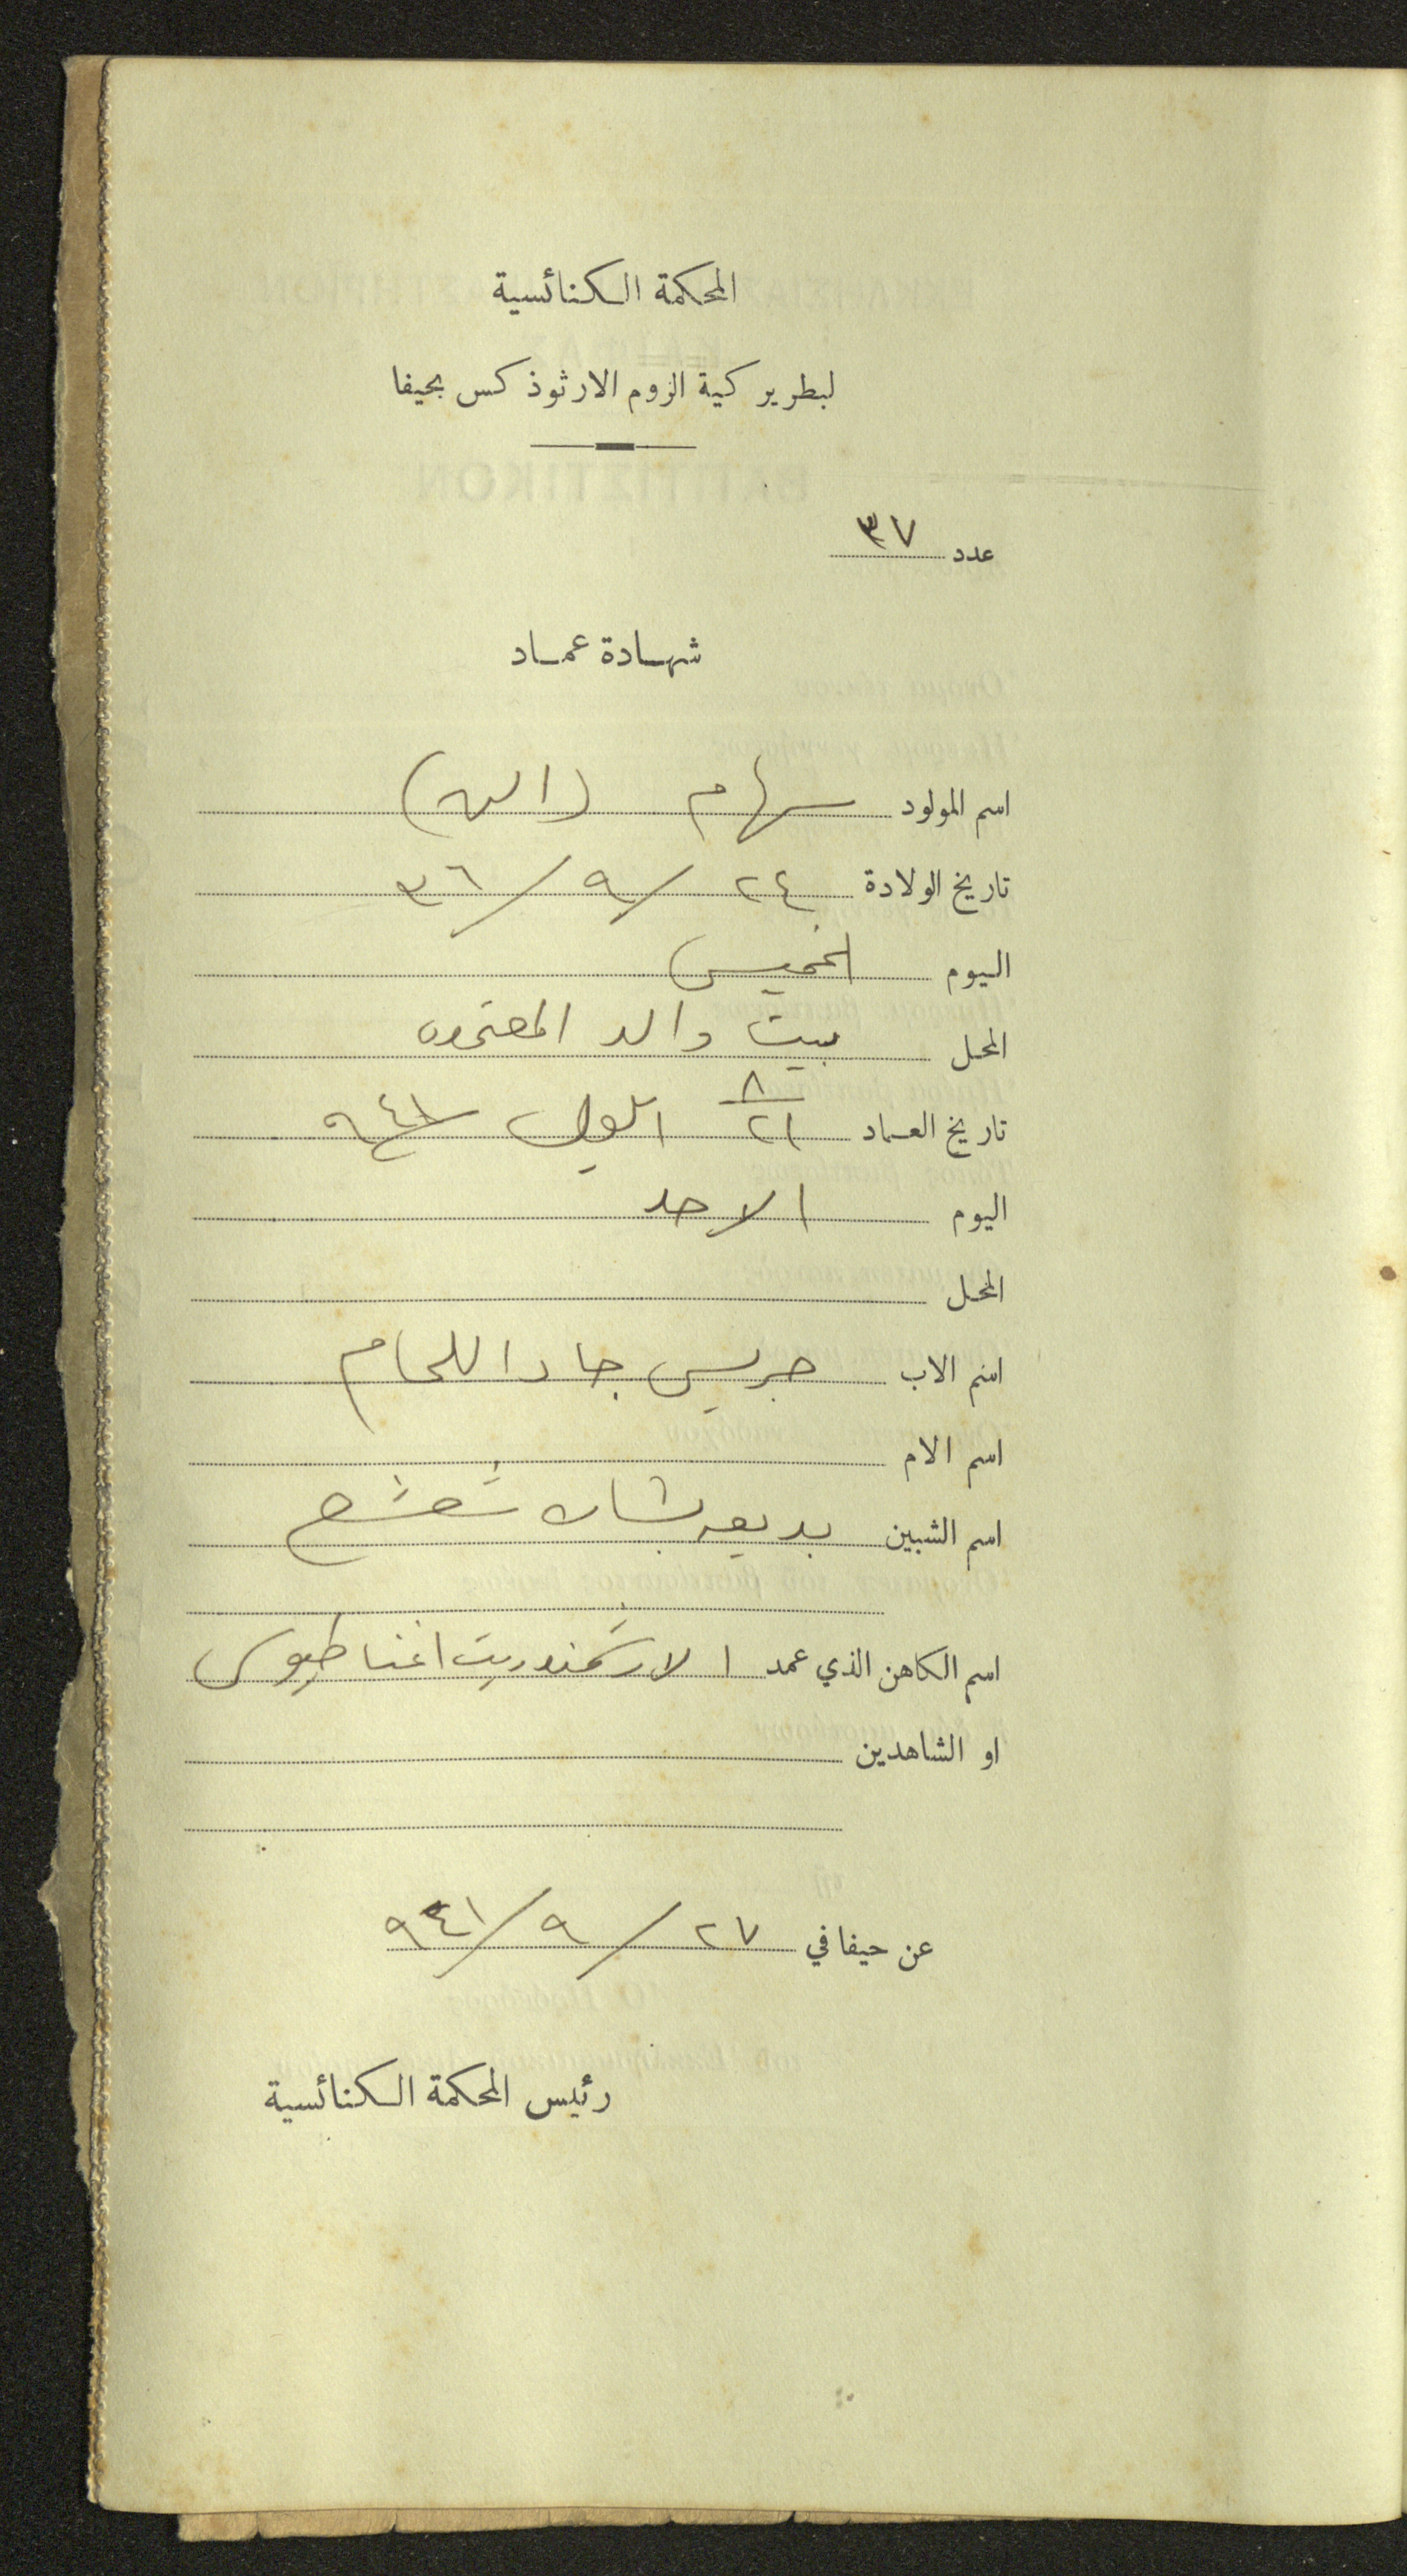 المحكمة الكنائسية
لبطريركية الروم الارثوذكس بحيفا
عدد ٣٧
شهادة عماد
اسم المولود سهام
تاريخ الولادة ٢٤/٩/٣٦
اليوم الخميس
المحل بيت والد المعتمد
تاريخ العماد ٨/٢١ ايلول ٩٤١
اليوم الاحد
المحل
اسم الاب جريس جاد اللحام
اسم الام
اسم الشبين بديعه بشاره
اسم الكاهن الذي عمد الارشمندريت اغناطيوس
او الشاهدين
عن حيفا في ٢٧/٩/٩٤١
رئيس المحكمة الكنائسية